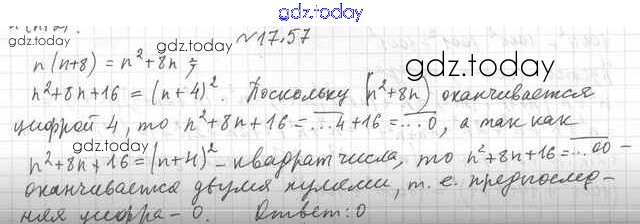 gdz.today
n(n+2).
gdz.today
№17.57
gdz.today
n(n+8) = n²+8n;
gdz.today
n²+8n+16 = (n+4)². Поскольку (n²+8n) оканчивается
цифрой 4, то n²+8n+16 = ...4+16 = ...0, а так как
gdz.today
n²+8n+16 = (n+4)² - квадрат числа, то n²+8n+16 = ...00 -
оканчивается двумя нулями, т. е. предпослед-
няя цифра - 0. Ответ: 0